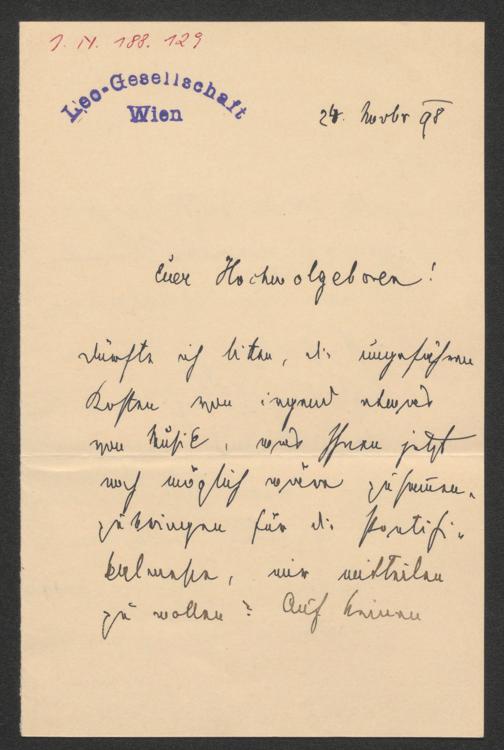 J. N. 188.129
Leo-Gesellschaft
Wien
24. Novbr 98
Euer Hochwolgeboren!
Dürfte ich bitten, die ungefähren
Kosten von irgend etwas
von Musik, was Ihnen jetzt
noch möglich wäre zusammen-
zubringen für die Pontifi-
kalmesse, mir mitteilen
zu wollen? Auf keinen